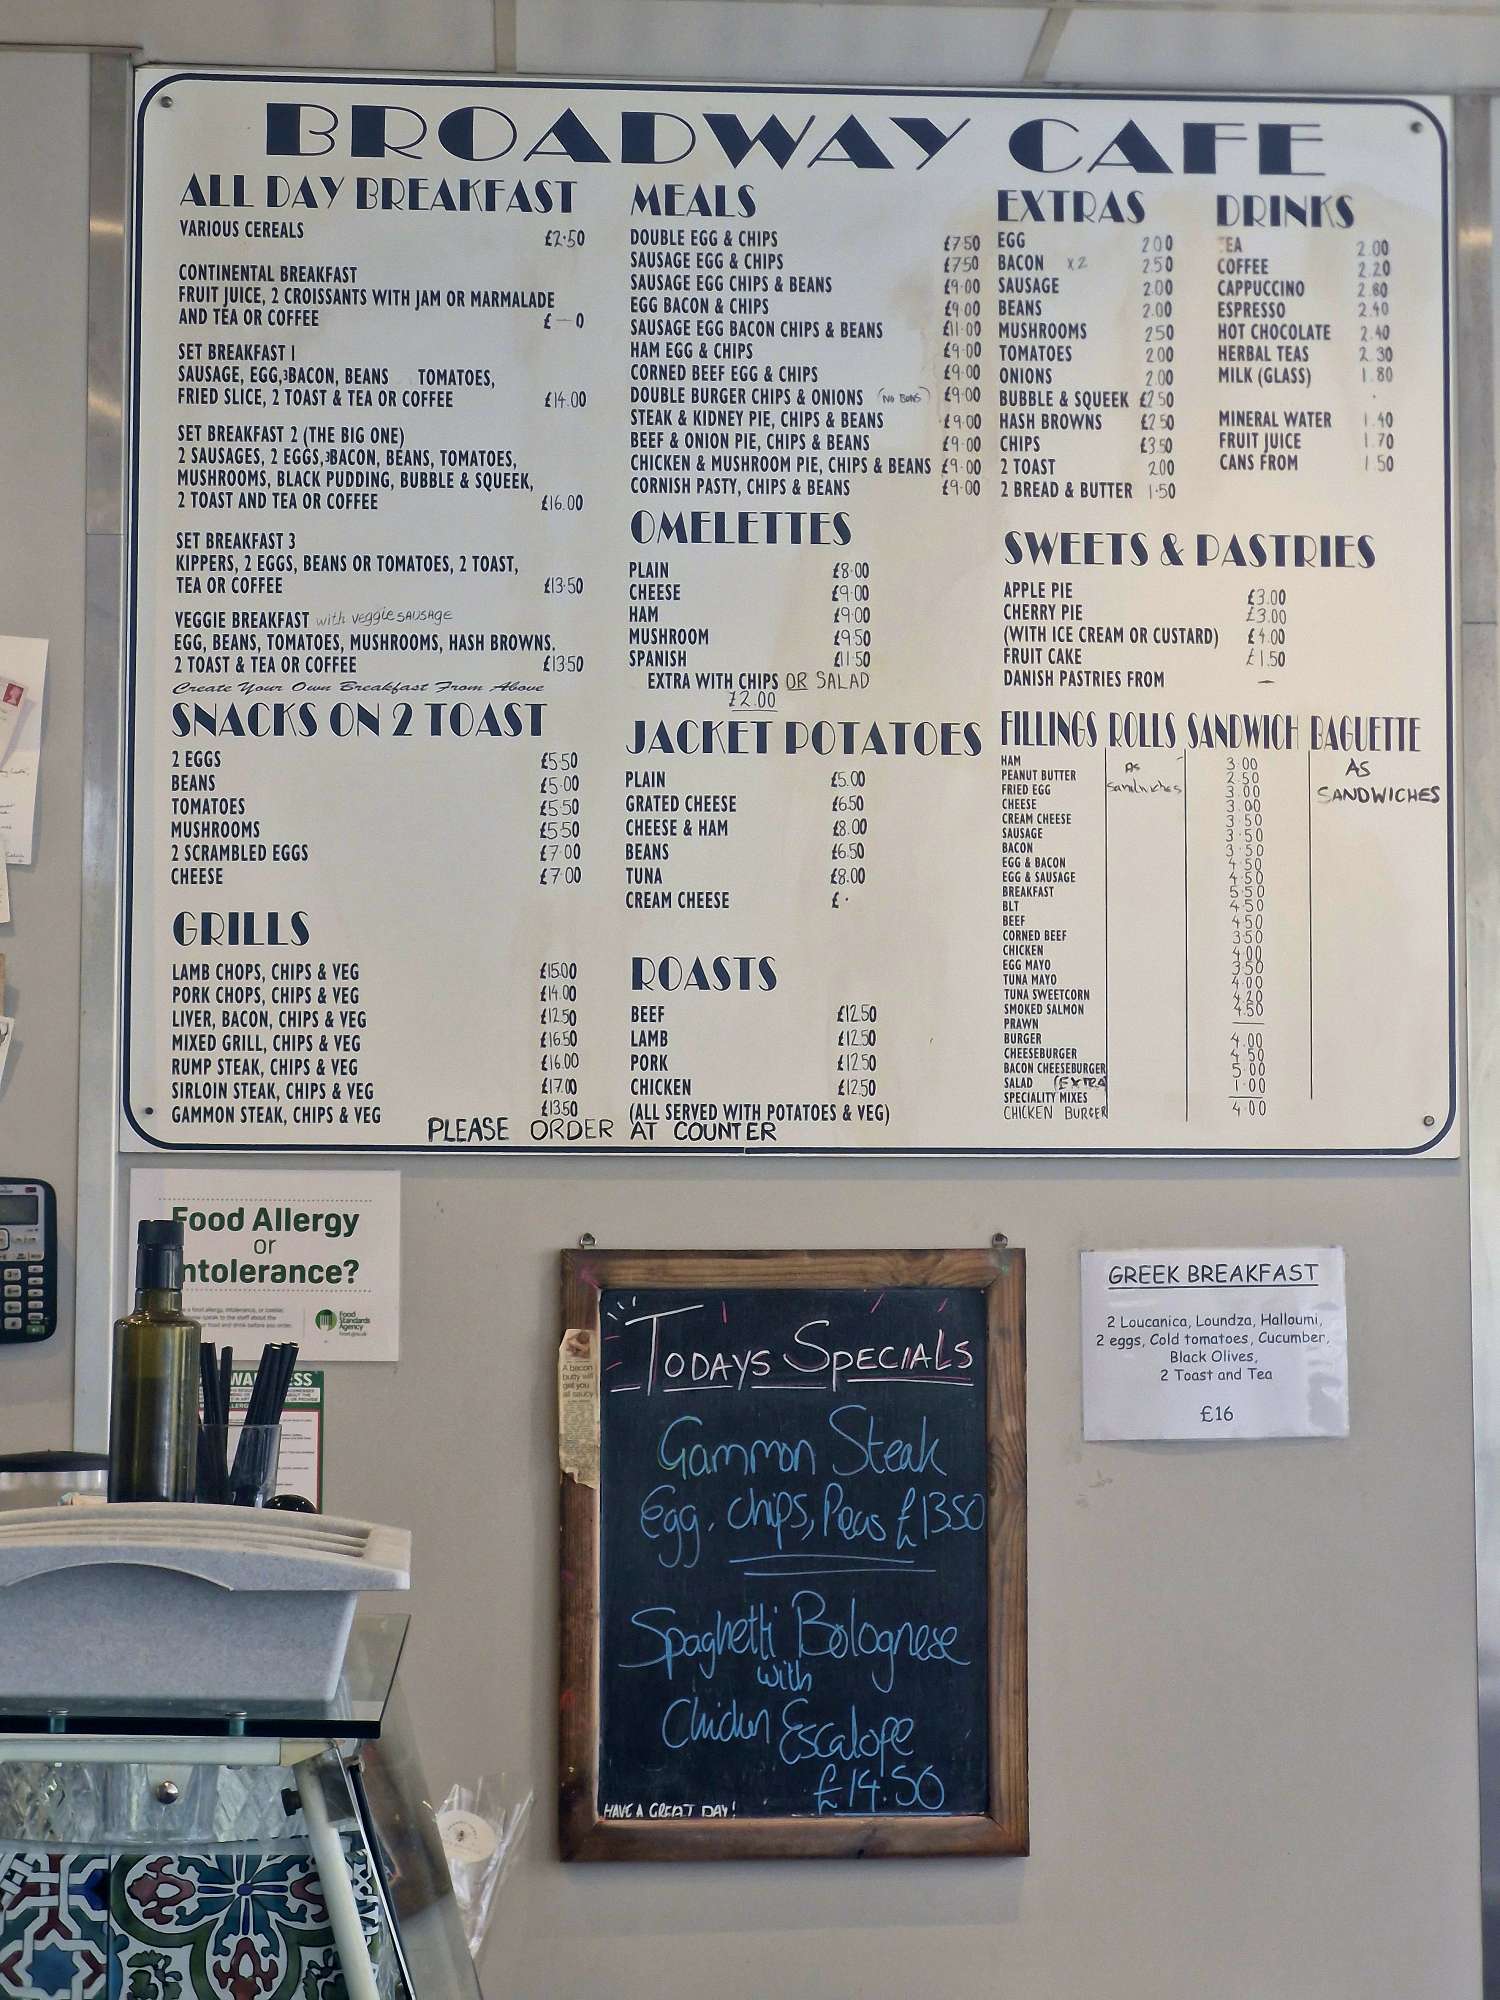 BROADWAY CAFE
ALL DAY BREAKFAST
VARIOUS CEREALS £2.50
CONTINENTAL BREAKFAST
FRUIT JUICE, 2 CROISSANTS WITH JAM OR MARMALADE
AND TEA OR COFFEE £ — 0
SET BREAKFAST 1
SAUSAGE, EGG, 3 BACON, BEANS TOMATOES,
FRIED SLICE, 2 TOAST & TEA OR COFFEE £14.00
SET BREAKFAST 2 (THE BIG ONE)
2 SAUSAGES, 2 EGGS, 3 BACON, BEANS, TOMATOES,
MUSHROOMS, BLACK PUDDING, BUBBLE & SQUEEK,
2 TOAST AND TEA OR COFFEE £16.00
SET BREAKFAST 3
KIPPERS, 2 EGGS, BEANS OR TOMATOES, 2 TOAST,
TEA OR COFFEE £13.50
VEGGIE BREAKFAST with veggie SAUSAGE
EGG, BEANS, TOMATOES, MUSHROOMS, HASH BROWNS.
2 TOAST & TEA OR COFFEE £13.50
Create Your Own Breakfast From Above
SNACKS ON 2 TOAST
2 EGGS £5.50
BEANS £5.00
TOMATOES £5.50
MUSHROOMS £5.50
2 SCRAMBLED EGGS £7.00
CHEESE £7.00
GRILLS
LAMB CHOPS, CHIPS & VEG £15.00
PORK CHOPS, CHIPS & VEG £14.00
LIVER, BACON, CHIPS & VEG £12.50
MIXED GRILL, CHIPS & VEG £16.50
RUMP STEAK, CHIPS & VEG £16.00
SIRLOIN STEAK, CHIPS & VEG £17.00
GAMMON STEAK, CHIPS & VEG £13.50
MEALS
DOUBLE EGG & CHIPS £7.50
SAUSAGE EGG & CHIPS £7.50
SAUSAGE EGG CHIPS & BEANS £9.00
EGG BACON & CHIPS £9.00
SAUSAGE EGG BACON CHIPS & BEANS £11.00
HAM EGG & CHIPS £9.00
CORNED BEEF EGG & CHIPS £9.00
DOUBLE BURGER CHIPS & ONIONS (NO BUNS) £9.00
STEAK & KIDNEY PIE, CHIPS & BEANS £9.00
BEEF & ONION PIE, CHIPS & BEANS £9.00
CHICKEN & MUSHROOM PIE, CHIPS & BEANS £9.00
CORNISH PASTY, CHIPS & BEANS £9.00
OMELETTES
PLAIN £8.00
CHEESE £9.00
HAM £9.00
MUSHROOM £9.50
SPANISH £11.50
EXTRA WITH CHIPS OR SALAD
£2.00
JACKET POTATOES
PLAIN £5.00
GRATED CHEESE £6.50
CHEESE & HAM £8.00
BEANS £6.50
TUNA £8.00
CREAM CHEESE £ .
ROASTS
BEEF £12.50
LAMB £12.50
PORK £12.50
CHICKEN £12.50
(ALL SERVED WITH POTATOES & VEG)
PLEASE ORDER AT COUNTER
EXTRAS
EGG 2.00
BACON x2 2.50
SAUSAGE 2.00
BEANS 2.00
MUSHROOMS 2.50
TOMATOES 2.00
ONIONS 2.00
BUBBLE & SQUEEK £2.50
HASH BROWNS £2.50
CHIPS £3.50
2 TOAST 2.00
2 BREAD & BUTTER 1.50
DRINKS
TEA 2.00
COFFEE 2.20
CAPPUCCINO 2.80
ESPRESSO 2.40
HOT CHOCOLATE 2.40
HERBAL TEAS 2.30
MILK (GLASS) 1.80
MINERAL WATER 1.40
FRUIT JUICE 1.70
CANS FROM 1.50
SWEETS & PASTRIES
APPLE PIE £3.00
CHERRY PIE £3.00
(WITH ICE CREAM OR CUSTARD) £4.00
FRUIT CAKE £1.50
DANISH PASTRIES FROM —
FILLINGS ROLLS SANDWICH BAGUETTE
As sandwiches
AS SANDWICHES
HAM 3.00
PEANUT BUTTER 2.50
FRIED EGG 3.00
CHEESE 3.00
CREAM CHEESE 3.50
SAUSAGE 3.50
BACON 3.50
EGG & BACON 4.50
EGG & SAUSAGE 4.50
BREAKFAST 5.50
BLT 4.50
BEEF 4.50
CORNED BEEF 3.50
CHICKEN 4.00
EGG MAYO 3.50
TUNA MAYO 4.00
TUNA SWEETCORN 4.20
SMOKED SALMON 4.50
PRAWN —
BURGER 4.00
CHEESEBURGER 4.50
BACON CHEESEBURGER 5.00
SALAD (EXTRA 1.00
SPECIALITY MIXES —
CHICKEN BURGER 4.00
Food Allergy
or
ntolerance?
Food
Standards
Agency
food.gov.uk
A bacon
butty will
get you
all saucy
TODAYS SPECIALS
Gammon Steak
Egg, chips, Peas £13.50
Spaghetti Bolognese
with
Chicken Escalope
£14.50
HAVE A GREAT DAY!
GREEK BREAKFAST
2 Loucanica, Loundza, Halloumi,
2 eggs, Cold tomatoes, Cucumber,
Black Olives,
2 Toast and Tea
£16